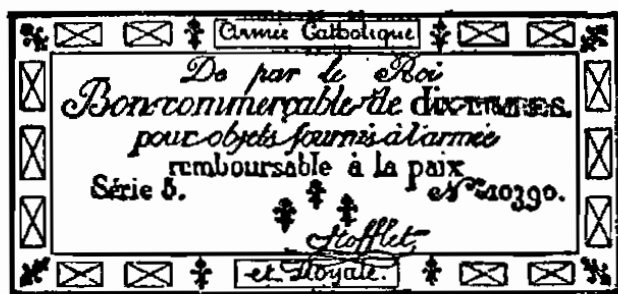 Armée Catholique
De par le Roi
Bon commerçable de dix
pour objets fournis à l'armée
remboursable à la paix
Série 5. N° 10390.
Stofflet
et Royale.